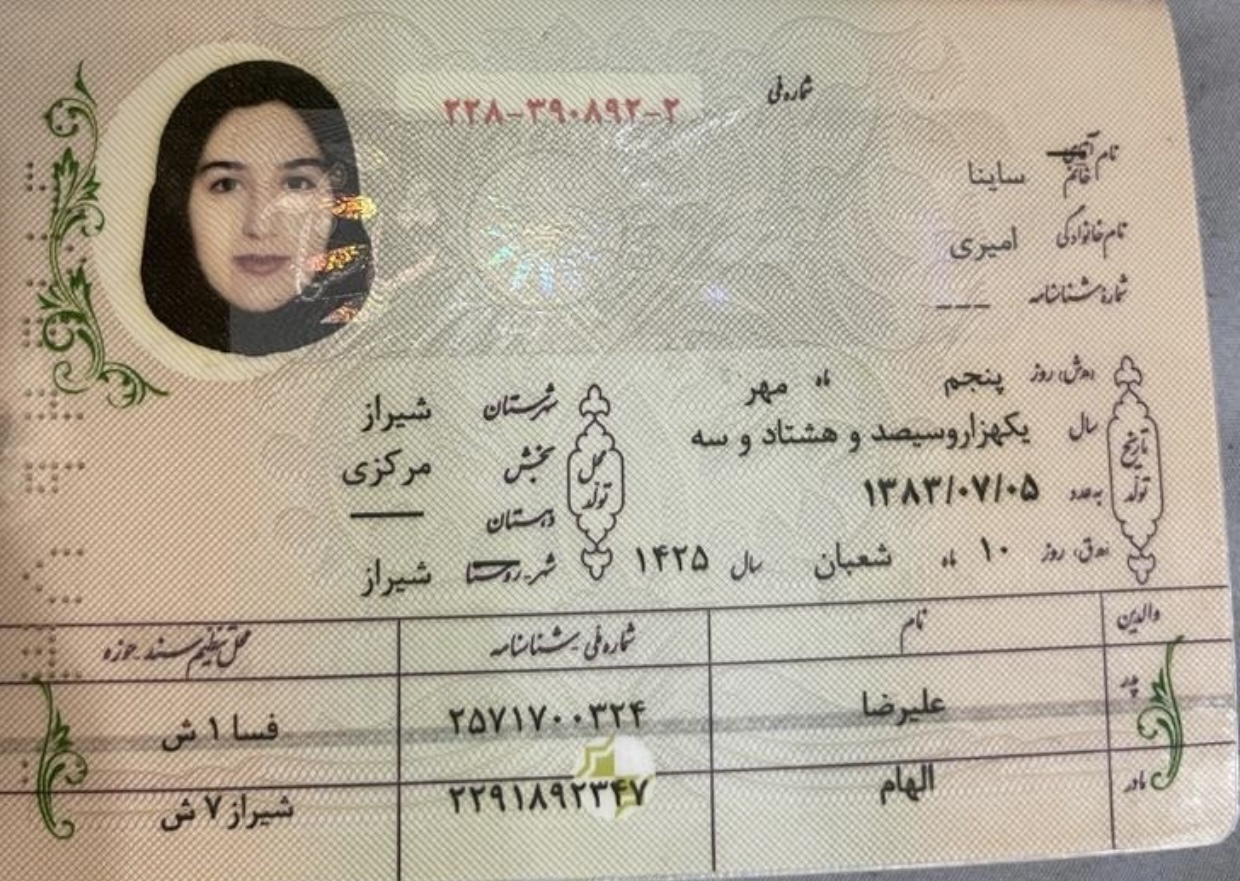 شماره ملی ۲۲۸-۳۹۰۸۹۲-۲
نام آقای خانم ساینا
نام خانوادگی امیری
شماره شناسنامه ---
(ه‍.ش) روز پنجم ماه مهر
سال یکهزاروسیصد و هشتاد و سه
به عدد ۱۳۸۳/۰۷/۰۵
(ه‍.ق) روز ۱۰ ماه شعبان سال ۱۴۲۵
تاریخ تولد
محل تولد
شهرستان شیراز
بخش مرکزی
دهستان ——
شهر-روستا شیراز
والدین نام شماره ملی-شناسنامه محل تنظیم سند-حوزه
پدر علیرضا ۲۵۷۱۷۰۰۳۲۴ فسا ۱ ش
مادر الهام ۲۲۹۱۸۹۲۳۴۷ شیراز ۷ ش